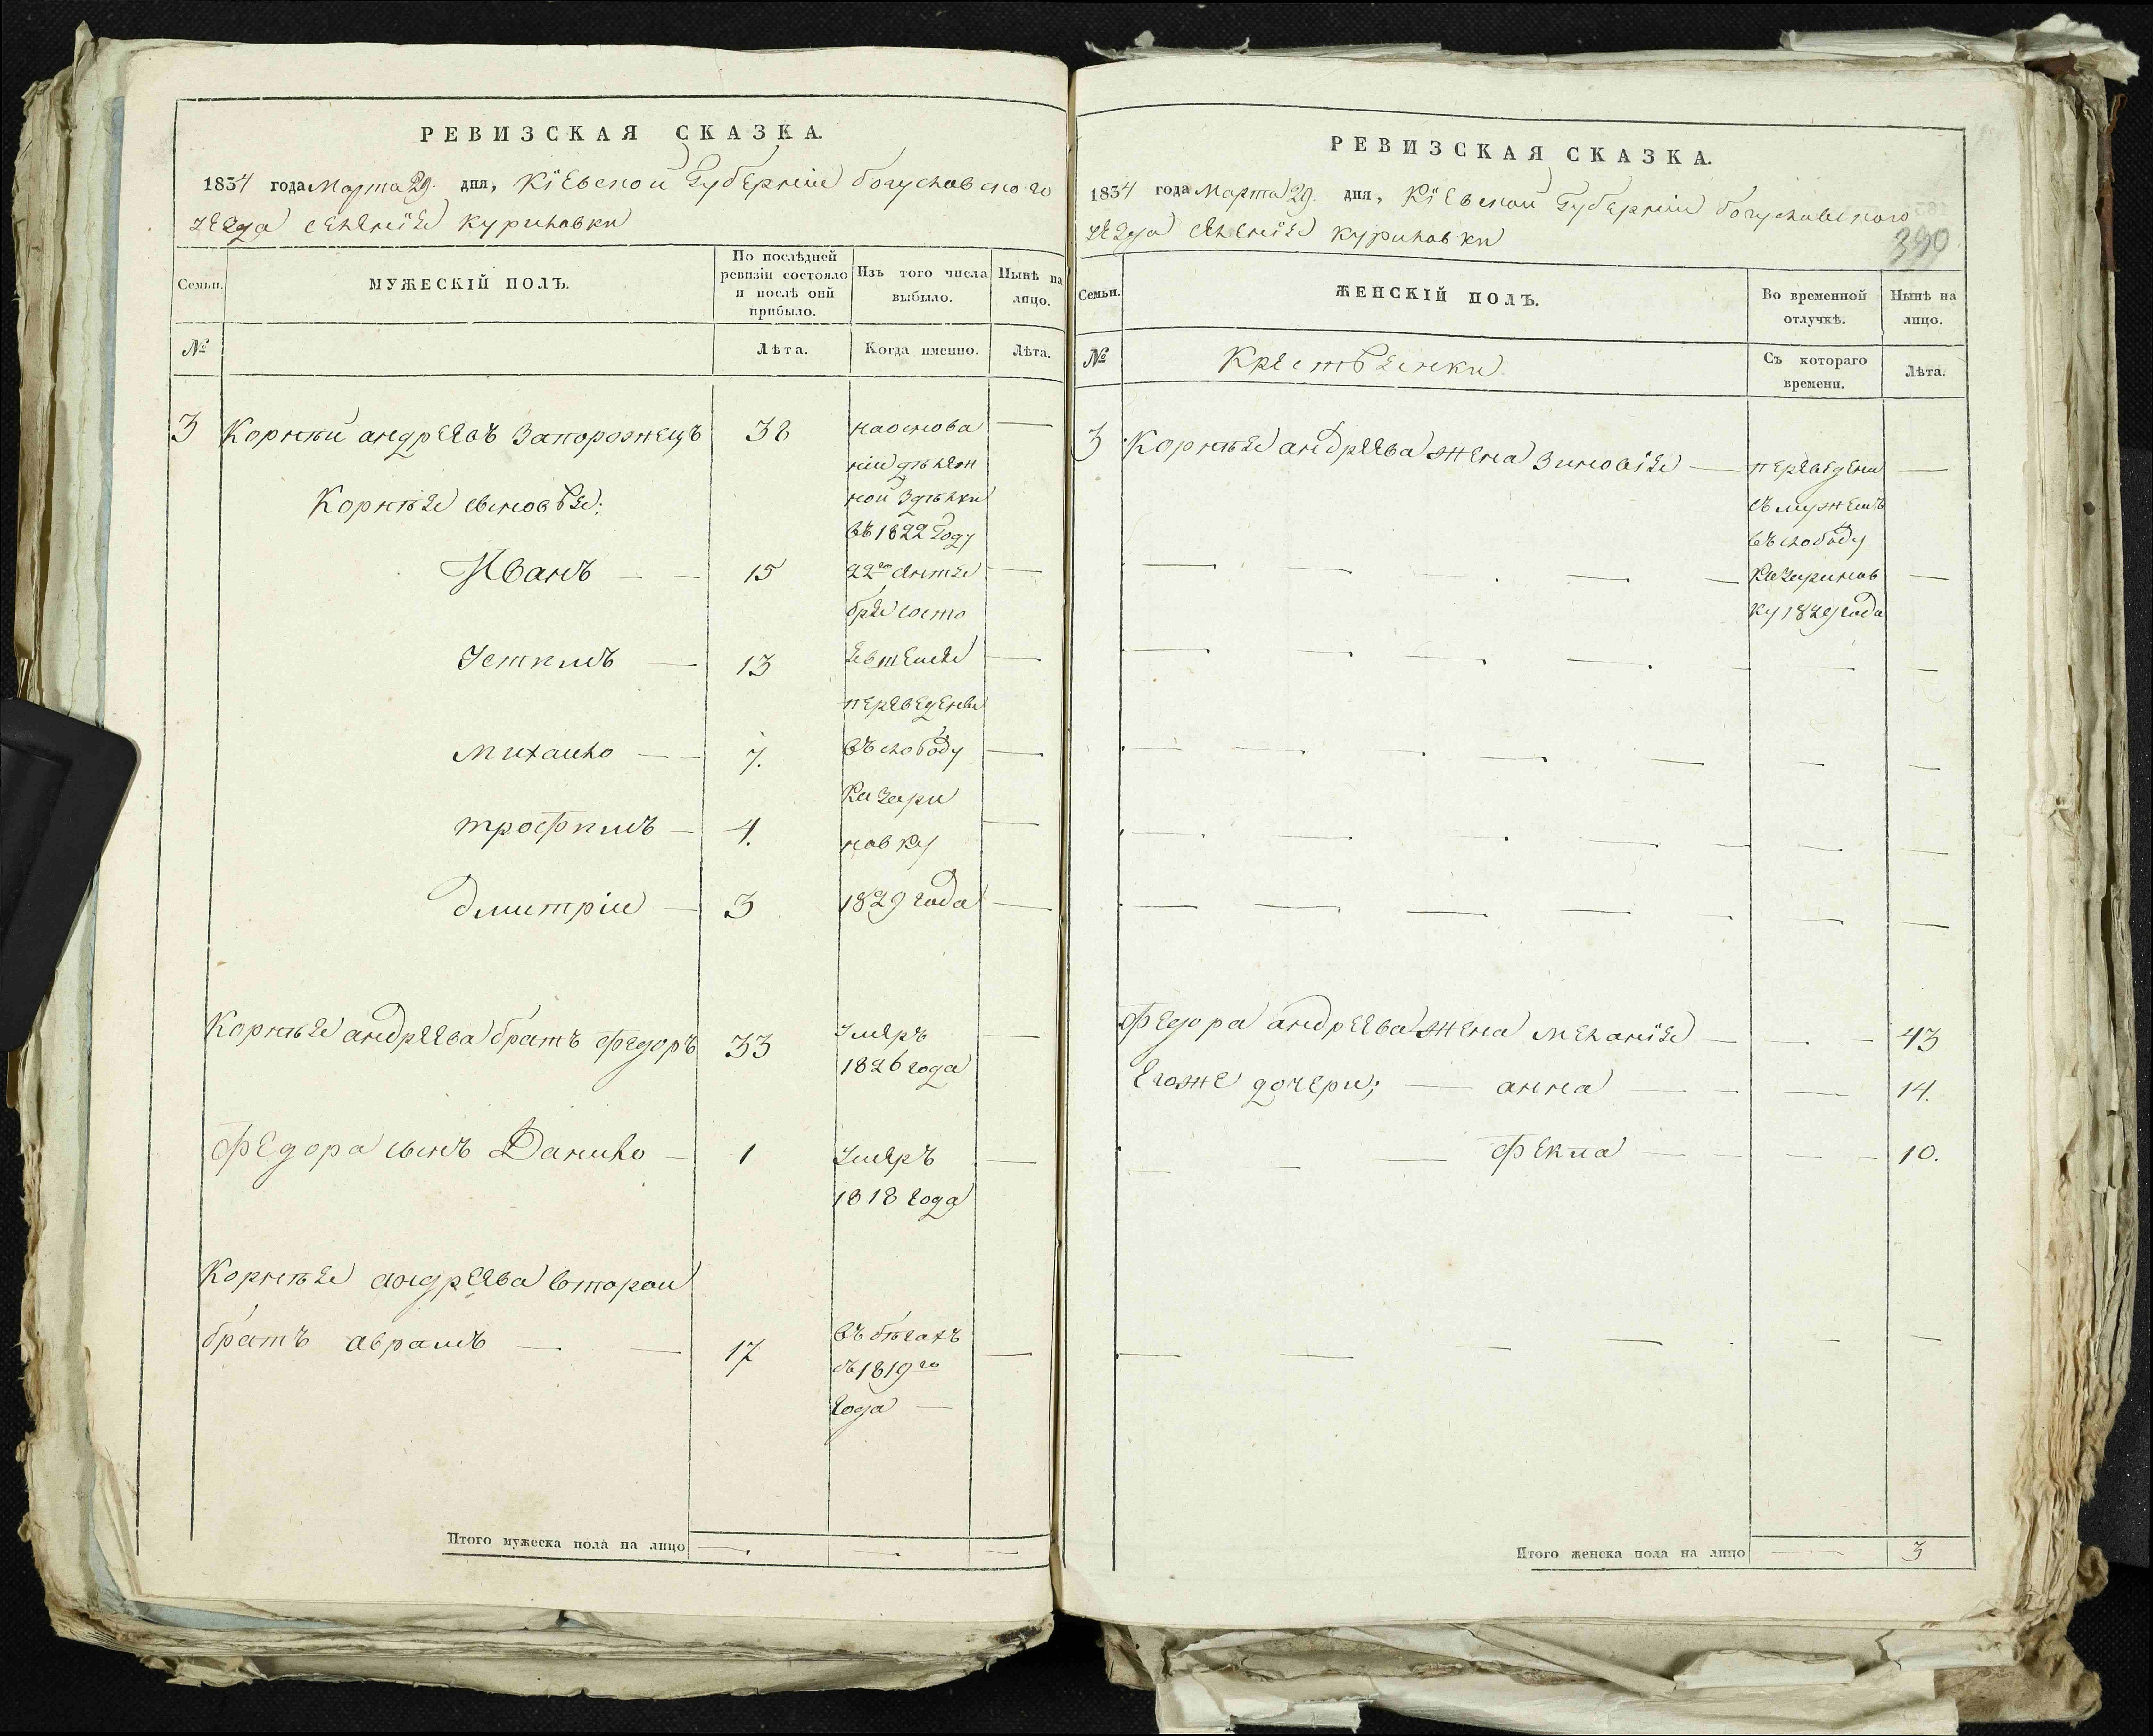 РЕВИЗСКАЯ СКАЗКА.
1834 года Марта 29. дня, Кіевской Губерніи богуславского
уезда селенія куриловки
Семьи. МУЖЕСКІЙ ПОЛЪ. По послѣдней ревизіи состояло и послѣ оній прибыло. Изъ того числа выбыло. Нынѣ на лицо.
№ Лѣта. Когда именно. Лѣта.
3 Корнѣй андреевъ Запорожецъ 38 на основа
ніи дѣлен
Корнѣя сыновья: ной здѣлки
въ 1822 Году
Иванъ — — 15 22го октя
бря состо
Устимъ — 13 явшейся
переведены
михайло — — 7. въ слободу
Казари
трофимъ — 4. новку
дмитріи — 3 1829 года
Корнѣя андреева братъ федоръ 33 Умеръ
1826 года
федора сынъ Данило — 1 Умеръ
1818 года
Корнѣя андреева второй
братъ аврамъ — — 17 въ бѣгахъ
съ 1819го
года —
Итого мужеска пола на лицо — — —
РЕВИЗСКАЯ СКАЗКА.
1834 года Марта 29. дня, Кіевской Губерніи богуславского
уезда селенія куриловки
390
Семьи. ЖЕНСКІЙ ПОЛЪ. Во временной отлучкѣ. Нынѣ на лицо.
№ Крестьянки Съ котораго времени. Лѣта.
3 Корнѣя андреева жена Зиновія — переведена —
съ мужемъ
въ слободу
Казаринов
ку 1829 года
федора андреева жена меланія — — 43
Егоже дочери; — анна — — 14.
фекла — — 10.
Итого женска пола на лицо — 3